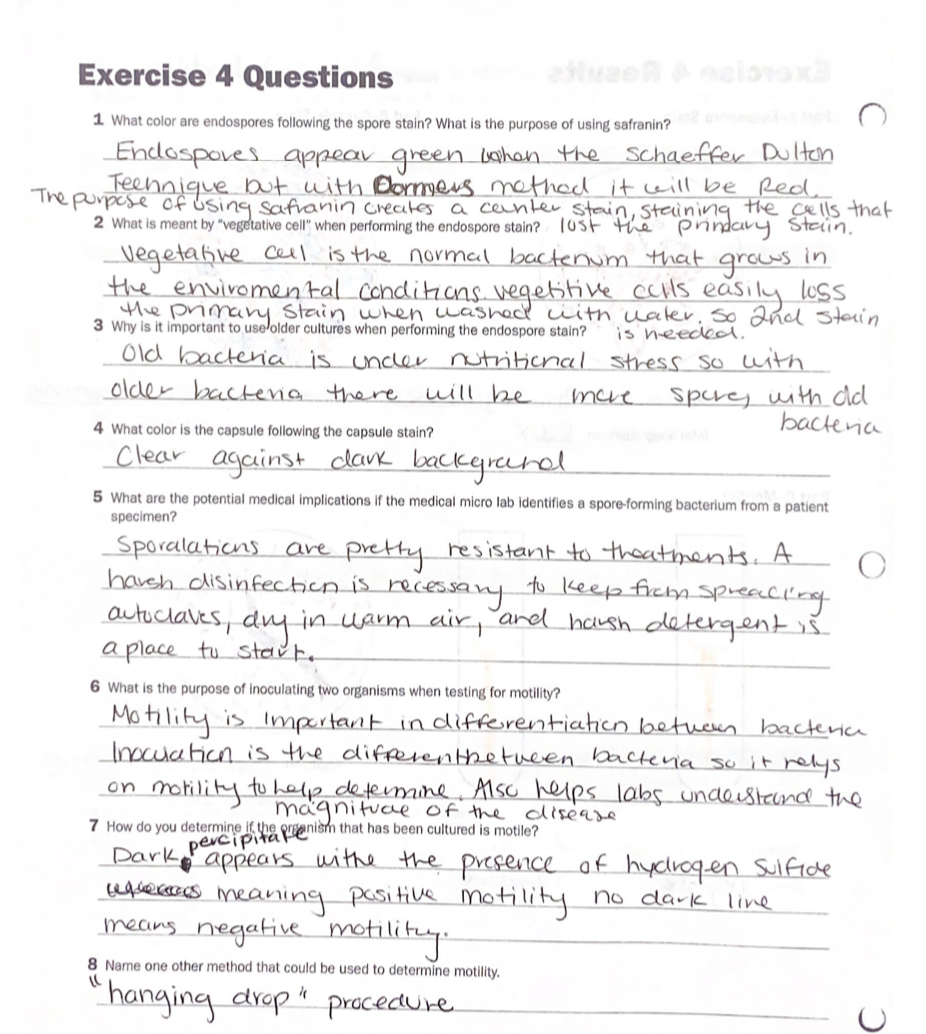 Exercise 4 Questions
1 What color are endospores following the spore stain? What is the purpose of using safranin?
Endospores appear green when the Schaeffer Dulton
Teehnique but with Dormers method it will be Red.
The purpose of using safranin creates a counter stain, staining the cells that
2 What is meant by "vegetative cell" when performing the endospore stain? lost the primary stain.
Vegetative cell is the normal bacterium that grows in
the enviromental conditions. vegetitive cells easily loss
the primary stain when washed with water. So 2nd stain
3 Why is it important to use older cultures when performing the endospore stain? is needed.
Old bacteria is under nutritional stress so with
older bacteria there will be more spores with old
bacteria
4 What color is the capsule following the capsule stain?
Clear against dark background
5 What are the potential medical implications if the medical micro lab identifies a spore-forming bacterium from a patient
specimen?
Sporalations are pretty resistant to theatments. A
harsh disinfection is necessary to keep from spreading
autoclaves, dry in warm air, and harsh detergent is
a place to start.
6 What is the purpose of inoculating two organisms when testing for motility?
Motility is important in differentiation between bacteria
Inocuation is the different between bacteria so it relys
on motility to help determine. Also helps labs understand the
magnitude of the disease
7 How do you determine if the organism that has been cultured is motile?
percipitate
Dark appears withe the presence of hydrogen sulfide
meaning positive motility no dark line
means negative motility.
8 Name one other method that could be used to determine motility.
"hanging drop" procedure